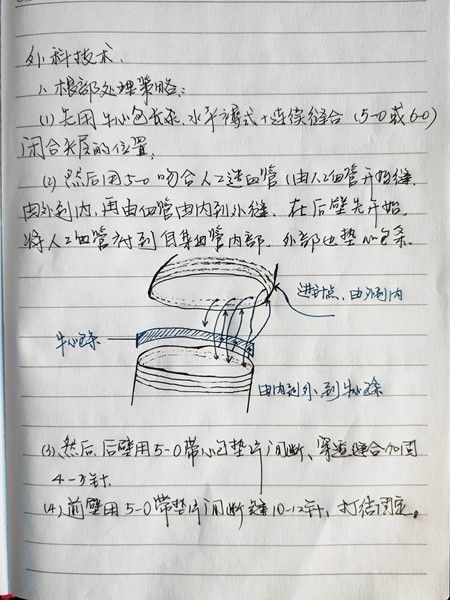 外科技术.
1、根部处理策略:
(1) 先用牛心包长条,水平褥式+连续缝合(5-0或6-0)
闭合夹层的位置,
(2) 然后用5-0吻合人工造血管(由人工血管开始缝,
由外到内,再由血管由内到外缝,在后壁先开始,
将人工血管衬到自体血管内部,外部也垫心包条.
进针点,由外到内
牛心包条
由内到外,到牛心包条
(3) 然后后壁用5-0带心包垫片间断、缝合加固
4-3针.
(4) 前壁用5-0带垫片间断缝10-12针,打结固定。